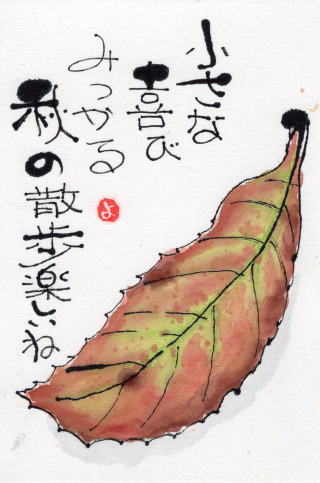 小さな
喜び
みつかる
秋の散歩楽しいね
よ